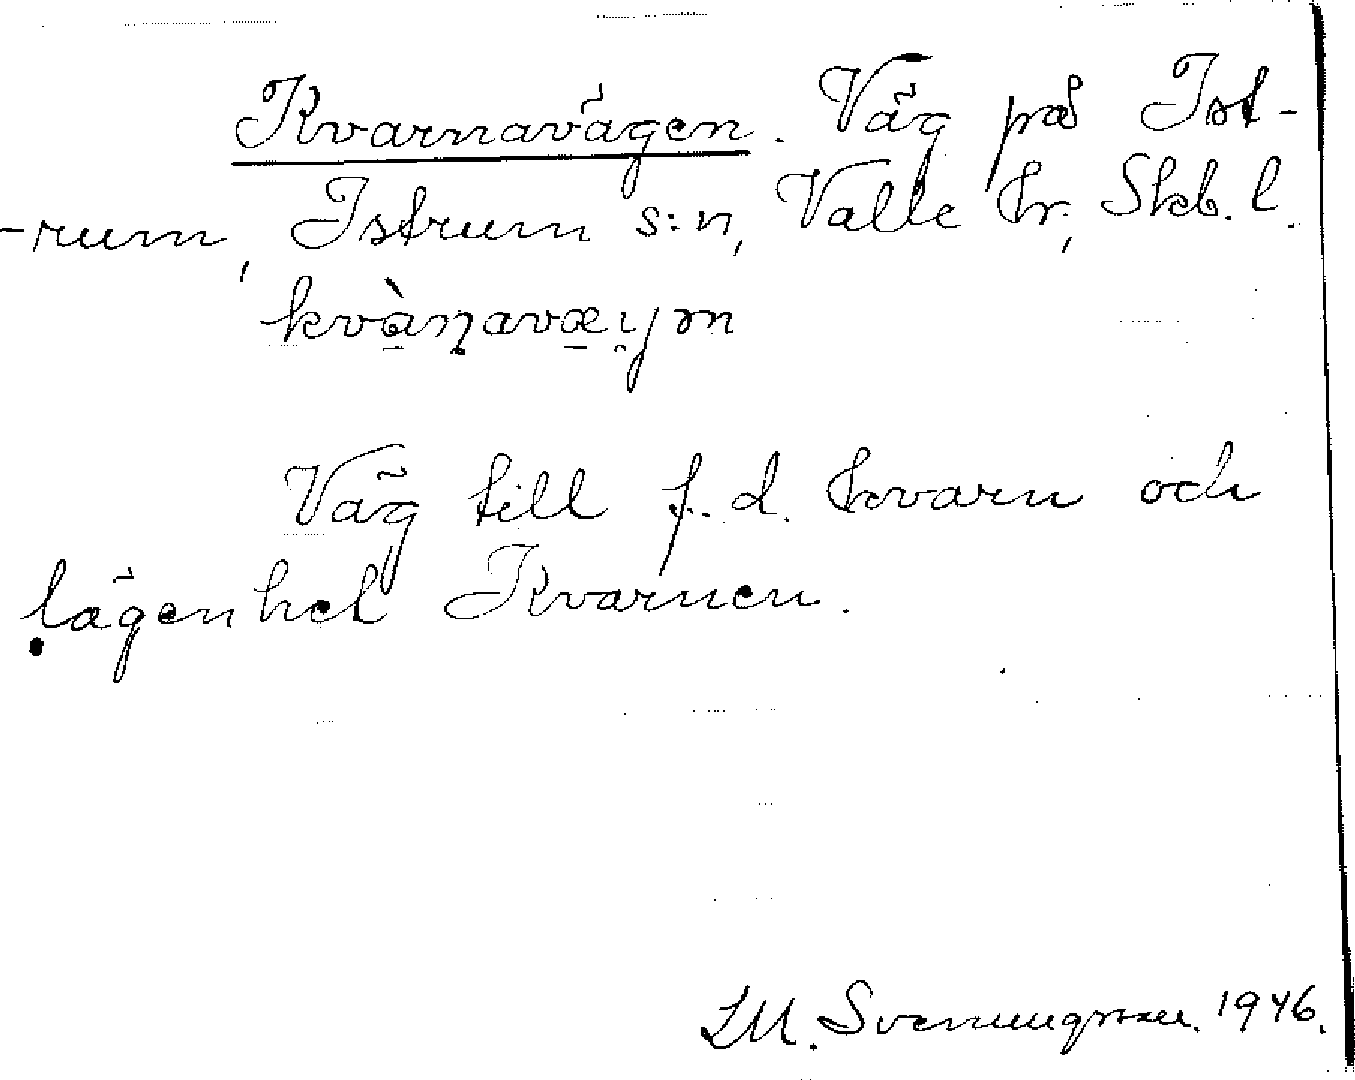 Kvarnavägen. Väg på Ist-
-rum, Istrum s:n, Valle hr, Skb. l.
Väg till f.d. kvarn och
lägenhet Kvarnen.
M. Svenungsson. 1946.